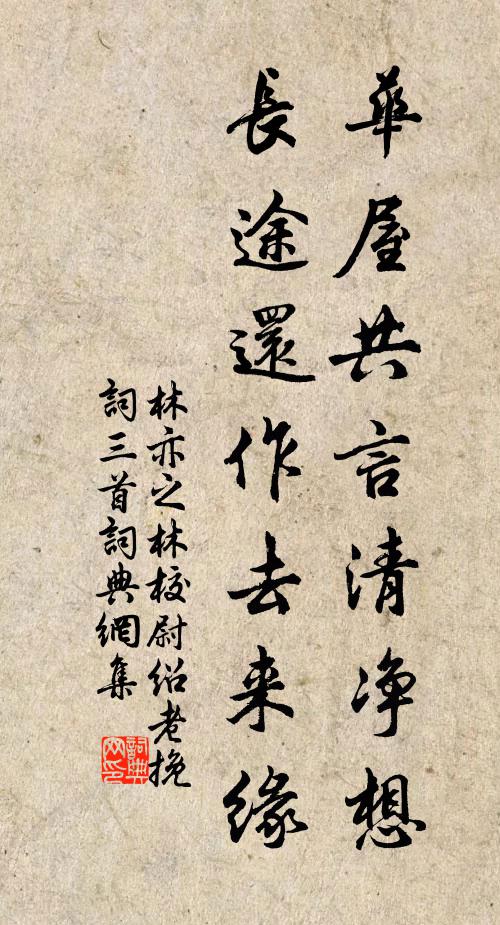 華屋共言清净想
長途還作去来緣
林亦之林校尉紹老挽
詞三首詞典網集
詞典
网印